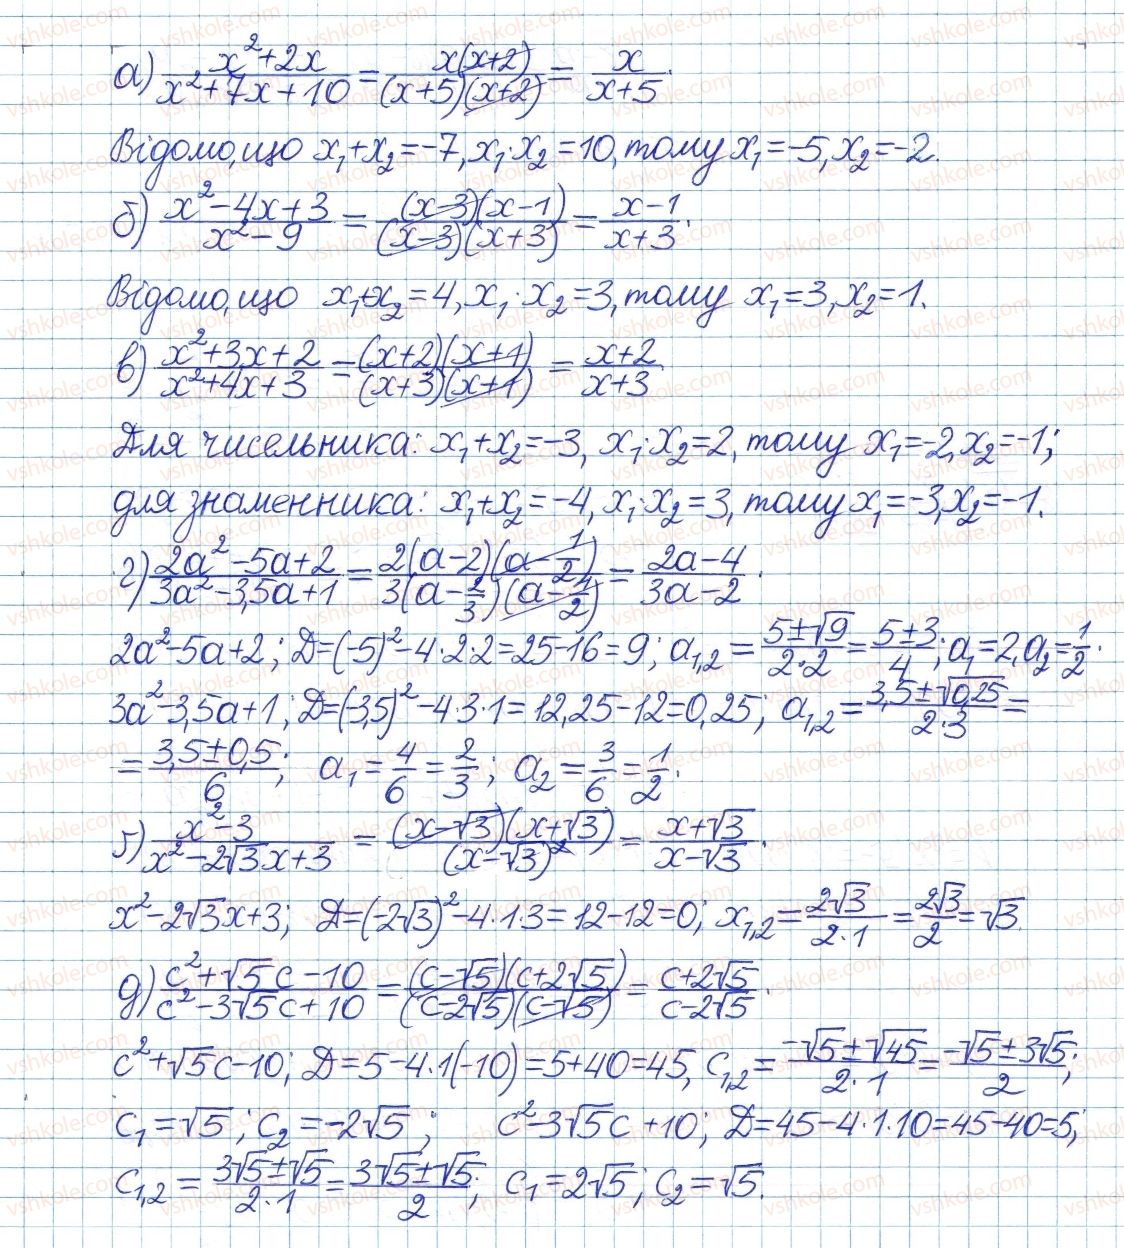 а) (x²+2x)/(x²+7x+10) = x(x+2)/((x+5)(x+2)) = x/(x+5).
Відомо, що x₁+x₂=-7, x₁·x₂=10, тому x₁=-5, x₂=-2.
б) (x²-4x+3)/(x²-9) = (x-3)(x-1)/((x-3)(x+3)) = (x-1)/(x+3).
Відомо, що x₁+x₂=4, x₁·x₂=3, тому x₁=3, x₂=1.
в) (x²+3x+2)/(x²+4x+3) = (x+2)(x+1)/((x+3)(x+1)) = (x+2)/(x+3).
Для чисельника: x₁+x₂=-3, x₁·x₂=2, тому x₁=-2, x₂=-1;
для знаменника: x₁+x₂=-4, x₁·x₂=3, тому x₁=-3, x₂=-1.
г) (2a²-5a+2)/(3a²-3,5a+1) = 2(a-2)(a-1/2)/(3(a-2/3)(a-1/2)) = (2a-4)/(3a-2).
2a²-5a+2; D=(-5)²-4·2·2=25-16=9; a₁,₂=(5±√9)/(2·2)=(5±3)/4; a₁=2, a₂=1/2.
3a²-3,5a+1; D=(-3,5)²-4·3·1=12,25-12=0,25; a₁,₂=(3,5±√0,25)/(2·3)=
=(3,5±0,5)/6; a₁=4/6=2/3; a₂=3/6=1/2.
ґ) (x²-3)/(x²-2√3x+3) = (x-√3)(x+√3)/(x-√3)² = (x+√3)/(x-√3).
x²-2√3x+3; D=(-2√3)²-4·1·3=12-12=0; x₁,₂=2√3/(2·1)=2√3/2=√3.
д) (c²+√5c-10)/(c²-3√5c+10) = (c-√5)(c+2√5)/((c-2√5)(c-√5)) = (c+2√5)/(c-2√5).
c²+√5c-10; D=5-4·1(-10)=5+40=45, c₁,₂=(-√5±√45)/(2·1)=(-√5±3√5)/2;
c₁=√5; c₂=-2√5; c²-3√5c+10; D=45-4·1·10=45-40=5;
c₁,₂=(3√5±√5)/(2·1)=(3√5±√5)/2; c₁=2√5; c₂=√5.